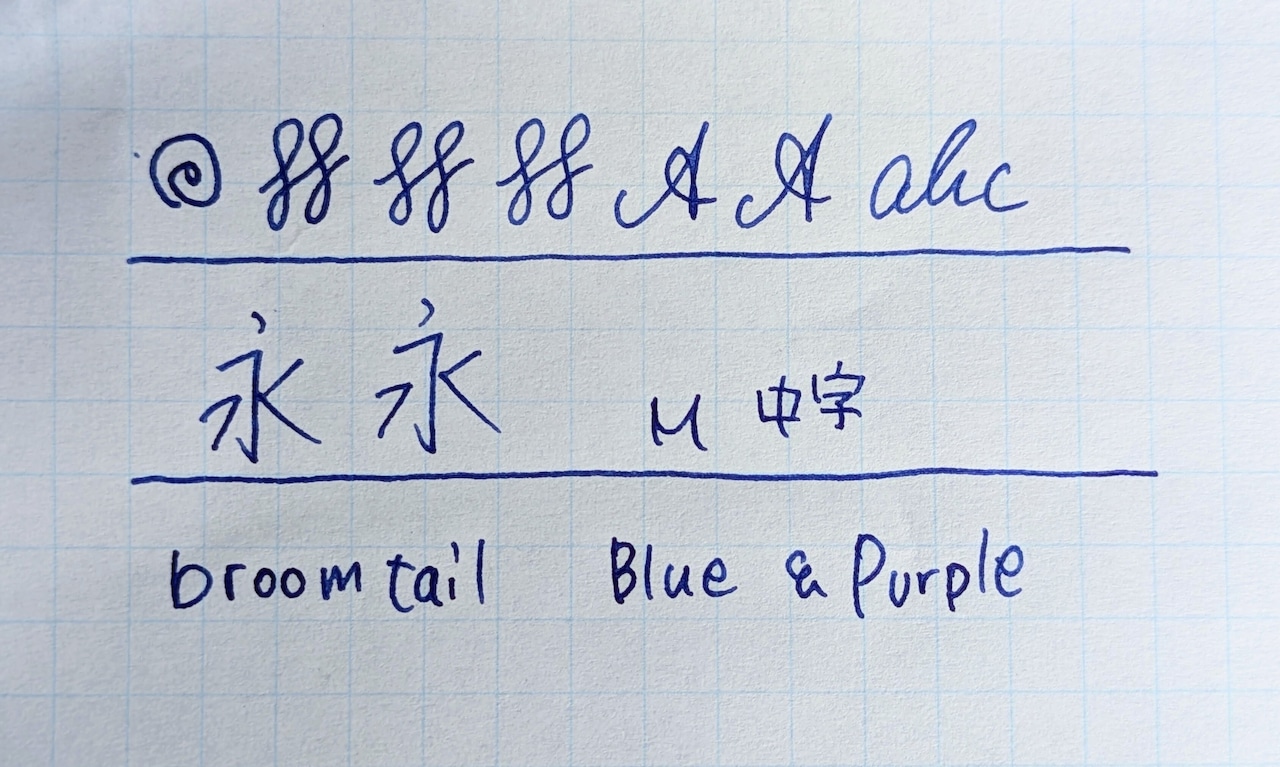 @ ff ff ff A A abc
永 永 M 中字
broom tail Blue & Purple